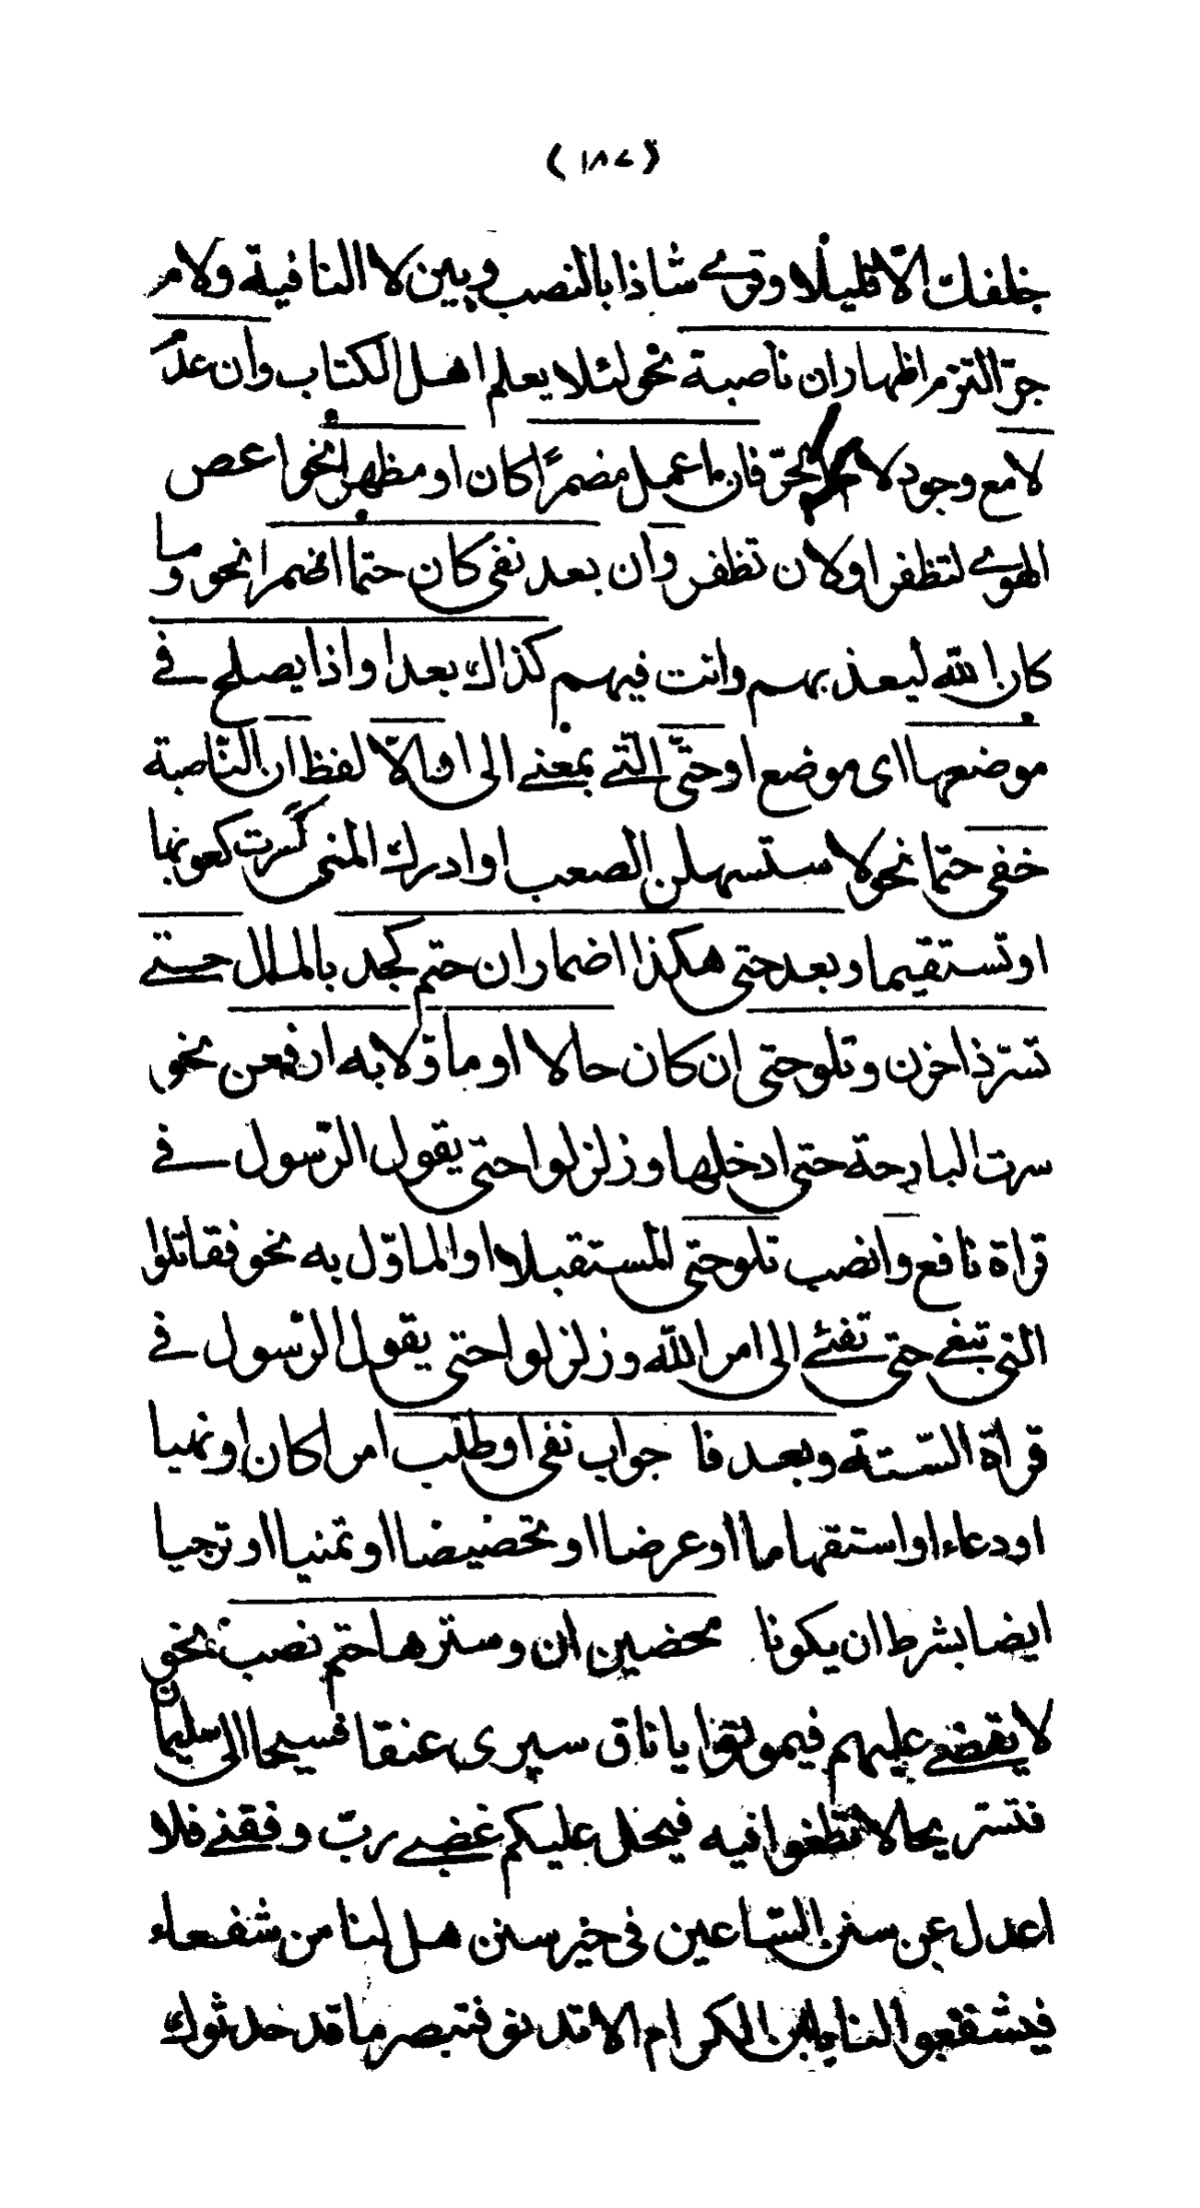 (١٨٧)
خلفك الا قليلا وقرئ شاذا بالنصب وبين لا النافية ولام
جرّ التزم اظهار ان ناصبة نحو لئلا يعلم اهل الكتاب وان عدم
لا مع وجود لا الجرّ فان اعمل مضمرًا كان او مظهرا نحو اعص
الهوى لتظفر او لان تظفر وان بعد نفى كان حتما اضمرا نحو وما
كان الله ليعذبهم وانت فيهم كذاك بعد او اذا يصلح فى
موضعها اى موضع او حتّى التى بمعنى الى او الّا لفظ ان النّاصبة
خفى حتما نحو لا ستسهلن الصعب او ادرك المنى كسرت كعوبها
او تستقيما وبعد حتى هكذا اضمار ان حتم كجد بالمال حتى
تسرّ ذا حزن وتلو حتى ان كان حالا او ماوّلا به ارفعن نحو
سرت البارحة حتى ادخلها وزلزلوا حتى يقول الرّسول فى
قراة نافع وانصب تلو حتى المستقبلا او الماوّل به نحو فقاتلوا
التى تبغى حتى تفئ الى امر الله وزلزلوا حتى يقول الرّسول فى
قراة السّتة وبعد فا جواب نفى او طلب امرا كان او نهيا
او دعاء او استفهاما او عرضا او تحضيضا او تمنيا او ترجيا
ايضا بشرط ان يكونا محضين ان وسترها حتم نصب نحو
لا يقضى عليهم فيموتوا يا ناق سيرى عنقا فسيحا الى سليمان
فنستريحا لا تطغوا فيه فيحل عليكم غضبى ربّ وفقنى فلا
اعدل عن سنن السّاعين فى خير سنن هل لنا من شفعاء
فيشفعوا لنا يا ابن الكرام الا تدنو فتبصر ما قد حدثوك